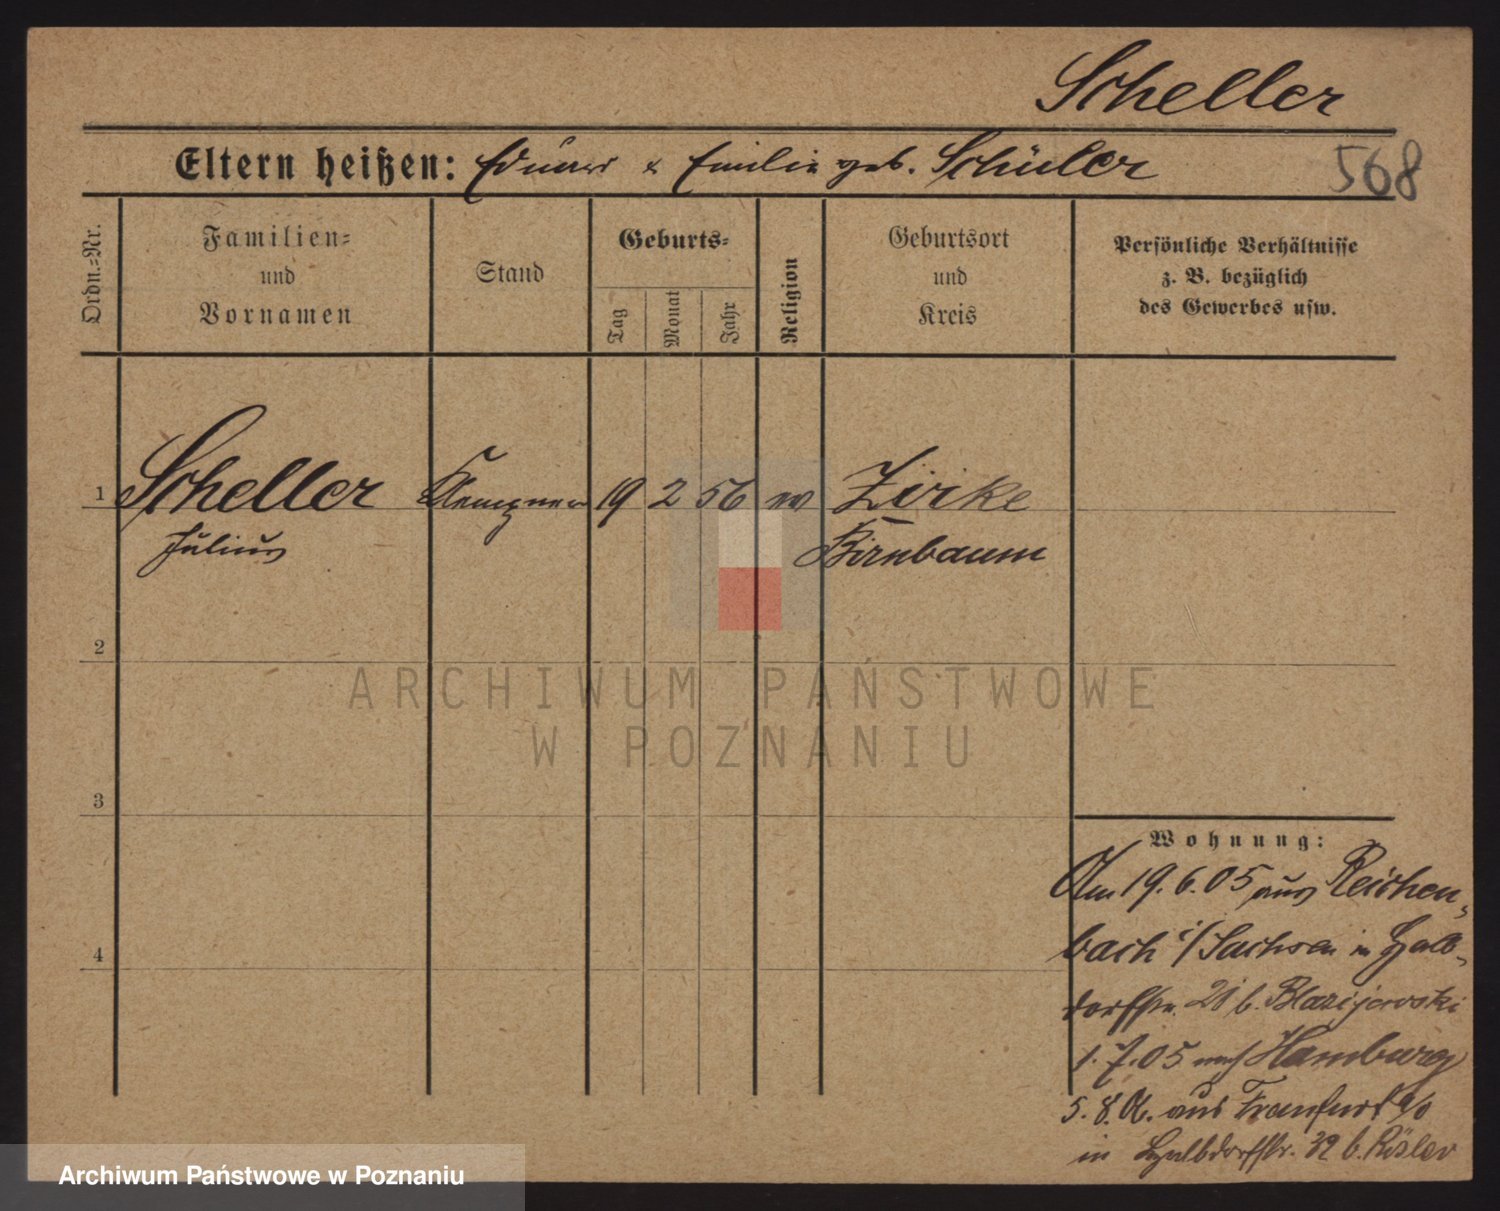 Scheller
Eltern heißen: Eduard & Emilie geb. Schüler
568
Ordn.-Nr.
Familien-
und
Vornamen
Stand
Geburts-
Tag
Monat
Jahr
Religion
Geburtsort
und
Kreis
Persönliche Verhältnisse
z. B. bezüglich
des Gewerbes usw.
1 Scheller Klempner 19 2 56 ev Zirke
Julius Birnbaum
2
3
4
Wohnung:
Am 19.6.05 aus Reichen-
bach i/Sachsen in Halb-
dorfstr. 21 b. Blazijewski
1.7.05 nach Hamburg
5.8.06. aus Frankfurt a/o
in Halbdorfstr. 32 b. Rösler
ARCHIWUM PAŃSTWOWE
W POZNANIU
Archiwum Państwowe w Poznaniu